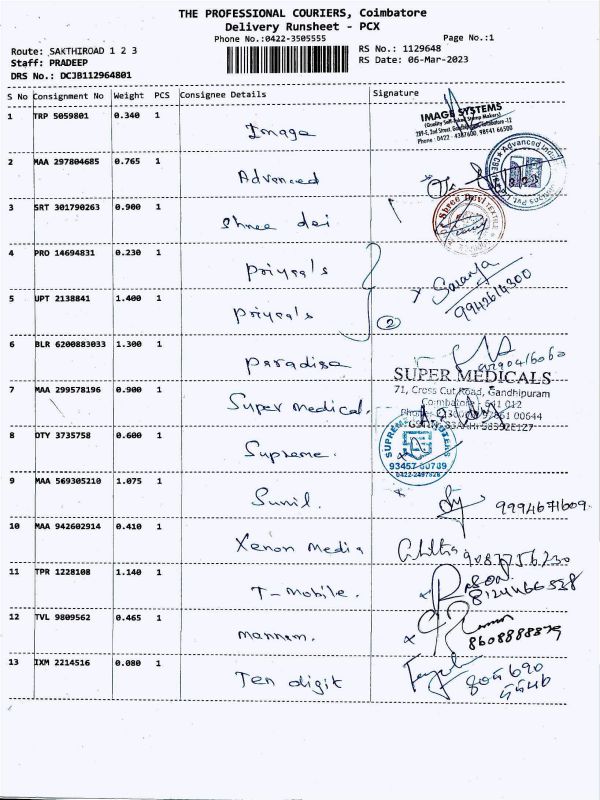 THE PROFESSIONAL COURIERS, Coimbatore
Delivery Runsheet - PCX
Phone No.:0422-3505555
Page No.:1
Route: SAKTHIROAD 1 2 3
RS No.: 1129648
Staff: PRADEEP
RS Date: 06-Mar-2023
DRS No.: DCJB112964801
S No Consignment No Weight PCS Consignee Details Signature
1 TRP 5059801 0.340 1 Image
IMAGE SYSTEMS
2 MAA 297804685 0.765 1 Advanced
3 SRT 301790263 0.900 1 Shree dei
4 PRO 14694831 0.230 1 Priyeals
Saranya
9942614300
5 UPT 2138841 1.400 1 Priyeals
2
6 BLR 6200883033 1.300 1 paradise
SUPER MEDICALS
71, Cross Cut Road, Gandhipuram
Coimbatore - 641 012
7 MAA 299578196 0.900 1 Super medical.
8 DTY 3735758 0.600 1 Supreme.
93457 60709
0422-2497828
9 MAA 569305210 1.075 1 Sunil.
9994671609.
10 MAA 942602914 0.410 1 Xenon Media
9087756230
11 TPR 1228108 1.140 1 T-mobile.
8124466538
12 TVL 9809562 0.465 1 mannem.
8608888879
13 IXM 2214516 0.080 1 Ten digit